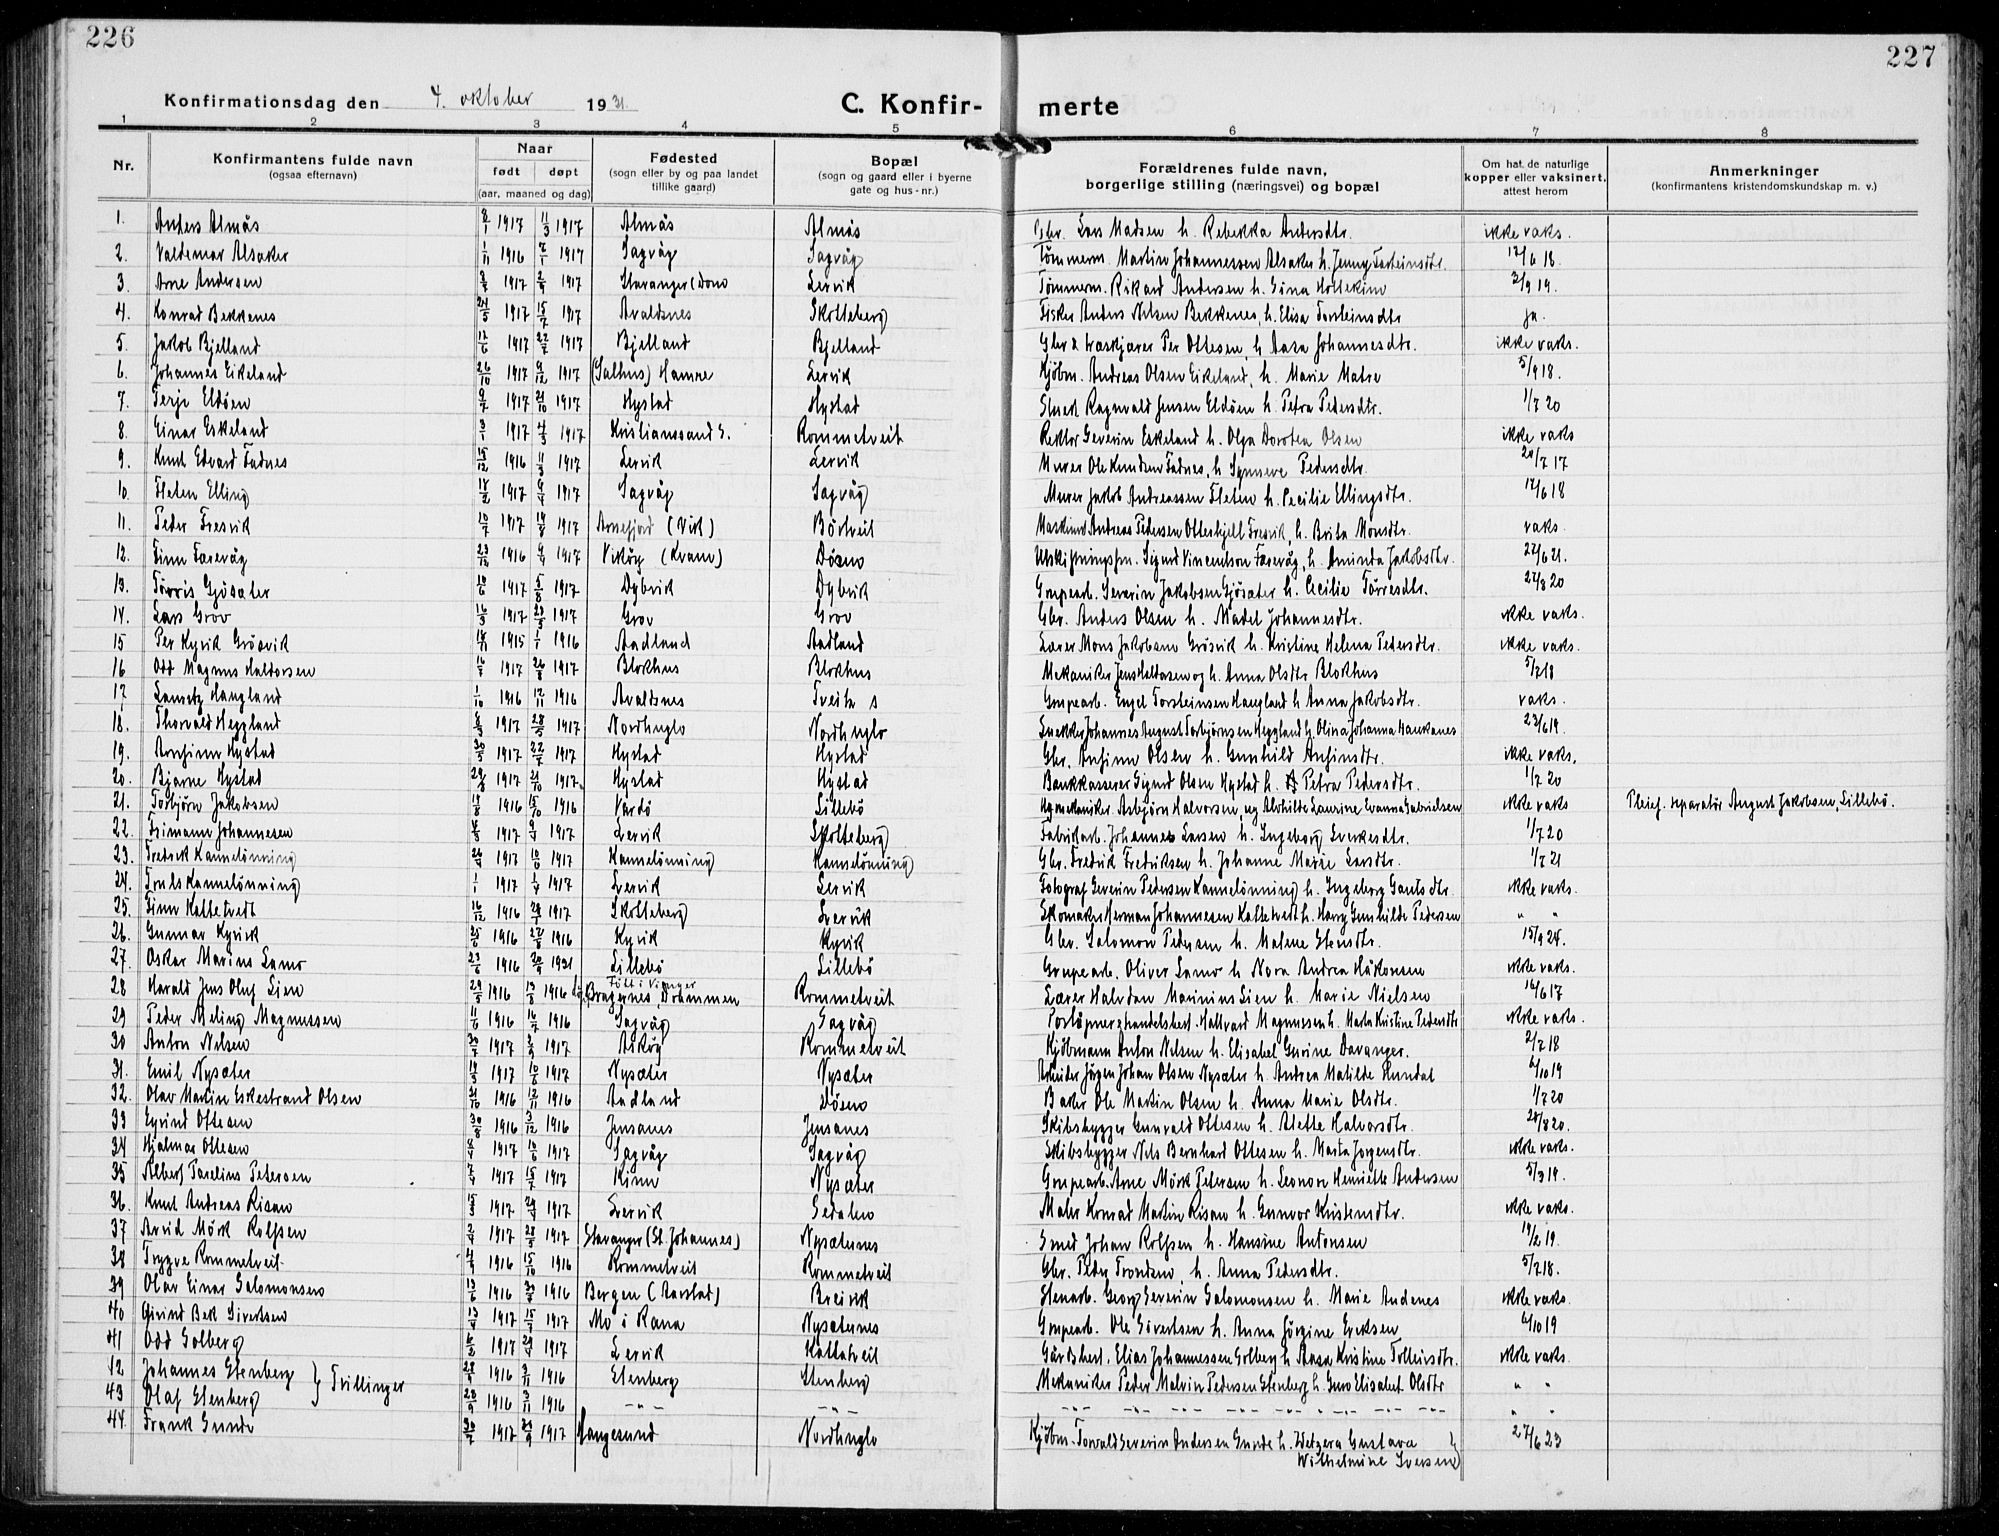 226
227
Konfirmationsdag den 4. oktober 1931.
C. Konfir-
merte
1 2 3 4 5 6 7 8
Nr.
Konfirmantens fulde navn
(ogsaa efternavn)
Naar
født døpt
(aar, maaned og dag)
Fødested
(sogn eller by og paa landet
tillike gaard)
Bopæl
(sogn og gaard eller i byerne
gate og hus-nr.)
Forældrenes fulde navn,
borgerlige stilling (næringsvei) og bopæl
Om hat. de naturlige
kopper eller vaksinert,
attest herom
Anmerkninger
(konfirmantens kristendomskundskap m. v.)
1. Anders Almås 8/1 1917 11/3 1917 Almås Almås Gbr. Lars Madsen h. Rebekka Andersdtr. ikke vaks.
2. Valdemar Alsaker 1/11 1916 7/1 1917 Sagvåg Sagvåg Tømmerm. Martin Johannessen Alsaker h. Jenny Torsteinsdtr. 12/6 18.
3. Arne Andersen 1917 1917 Stavanger (Dom Lervik Tømmerm. Rikard Andersen h. Gina 2/9 19.
4. Konrad Bekkenes 24/5 1917 15/7 1917 Avaldsnes Skotteberg Fisker Anders Nilsen Bekkenes, h. Elisa Torsteinsdtr ja.
5. Jakob Bjelland 12/6 1917 22/7 1917 Bjelland Bjelland Gbr & Per Ottesen, h. Aasa Johannesdtr. ikke vaks.
6. Johannes Eikeland 26/10 1917 9/12 1917 (Salhus) Hamre Lervik Kjøbm. Andreas Olsen Eikeland, h. Marie Matre 5/9 18.
7. Terje Eldøen 9/7 1917 21/10 1917 Hystad Hystad Ragnvald Jensen Eldøen h. Petra Pedersdtr. 1/7 20
8. Einar Eskeland 3/1 1917 4/3 1917 Kristianssand S. Rommetveit Rektor Severin Eskeland h. Olga Dorotea Olsen ikke vaks
9. Knut Edvard Fadnes 15/12 1916 11/3 1917 Lervik Lervik Murer Ole Knudsen Fadnes, h. Synneve Pedersdtr. 20/7 17
10. Fleten Elling 18/2 1917 9/4 1917 Sagvåg Sagvåg Murer Jakob Andreassen Fleten h. Cecilie Ellingsdtr. 12/6 18
11. Peder Fresvik 10/7 1917 19/8 1917 Arnefjord (Vik) Børtveit Maskinist Andreas Pedersen Otterhjell Fresvik, h. Brita Monsdtr. vaks.
12. Finn Farevåg 23/12 1916 9/4 1917 Vikøy (Kvam) Døsen Utskiftningsfm. Sigurd Vincentsen Farevåg, h. Aminda Jakobsdtr. 22/6 21.
13. Tørris Gjøsæter 10/6 1917 5/8 1917 Dybvik Dybvik Grupearb. Severin Jakobsen Gjøsæter h. Cecilie Tørresdtr. 27/8 20
14. Lars Grov 16/3 1917 1917 Grov Grov Gbr. Anders Olsen h. Madel Johannesdtr. ikke vaks.
15 Per Kyvik Grøsvik 18/11 1915 1/1 1916 Aadland Aadland Lærer Mons Jakobsen Grøsvik h. Kristine Helena Pedersdtr. ikke vaks.
16 Odd Magnus Haldorsen 1917 26/8 1917 Blokhus Blokhus Mekaniker Jens Haldorsen og h. Anna Olsdtr Blokhus 5/7 18
17 Haugland 1/10 1916 12/11 1916 Avaldsnes Tveita s Grupearb. Engel Torsteinsen Haugland h. Anna Jakobsdtr. vaks.
18. Thorvald Heggland 1917 28/5 1917 Nordhuglo Nordhuglo Snekker Johannes August Torbjørnsen Heggland h. Olina Johanna Haukanes 23/6 19.
19. Arnfinn Hystad 30/5 1917 22/7 1917 Hystad Hystad Gbr. Anfinn Olsen h. Gunhild Anfinsdtr. ikke vaks.
20. Bjarne Hystad 29/8 1917 21/10 1917 Hystad Hystad Bankkasserer Sigurd Olsen Hystad h. Petra Pedersdtr. 1/7 20
21. Torbjørn Jakobsen 1916 15/10 1916 Vardø Lillebø Asbjørn Halvorsen, og Gabrielsen ikke vaks Pleief. separatør August Jakobsen, Lillebø.
22. Frimann Johannesen 1917 9/4 1917 Lervik Skotteberg Fabrikarb. Johannes Larsen h. Ingeborg Sverkesdtr. 1/7 20
23. Fredrik Kannelønning 26/4 1917 10/6 1917 Kannelønning Kannelønning Gbr. Fredrik Fredriksen h. Johanne Marie Larsdtr. 1/7 21
24. Truls Kannelønning 1/1 1917 1/4 1917 Lervik Lervik Fotograf Severin Pedersen Kannelønning h. Ingeborg Gautsdtr. ikke vaks.
25. Finn Kattetvedt 16/12 1916 1917 Skotteberg Lervik Skomaker Herman Johannesen Kattetvedt h. Gunhilde Pedersen " "
26. Gunnar Kyvik 25/6 1916 27/8 1916 Kyvik Kyvik Gbr. Salomon Pedersen h. Malene Stensdtr. 15/9 24.
27. Oskar Marius Lamo 23/6 1916 20/9 1931 Lillebø Lillebø Grupearb. Oliver Lamo h Nora Andrea Håkonsen ikke vaks.
28 Harald Jens Oluf Lien 29/5 1916 13/8 1916 Født i Vianger Bragernes, Drammen Rommetveit Lærer Halvdan Marinius Lien h. Marie Nielsen 16/6 17
29 Peder Meling Magnussen 11/6 1916 16/7 1916 Sagvåg Sagvåg Poståpner & handelsbest. Hallvard Magnussen h. Marta Kristine Pedersdtr ikke vaks.
30 Anton Nilsen 30/7 1917 1917 Askøy Rommetveit Kjøbmann Anton Nilsen h. Elisabet Gurine Davanger. 2/7 18
31. Emil Nysæter 1917 10/6 1917 Nysæter Nysæter Arbeider Jørgen Johan Olsen Nysæter h. Andrea Matilde Hundal 6/10 19
32. Olav Martin Eskestrand Olsen 21/10 1916 12/11 1916 Aadland Døsen Baker Ole Martin Olsen h. Anna Marie Olsdtr. 1/7 20
33 Eyvind Ottesen 30/8 1916 3/12 1916 Jensanes Jensanes Skibsbygger Gunvald Ottesen h. Alette Halvorsdtr. 20/8 20.
34 Hjalmar Ottesen 1917 10/6 1917 Sagvåg Sagvåg Skibsbygger Nils Bernhard Ottesen h. Marta Jørgensdtr. ikke vaks.
35 Albert Parelius Petersen 7/4 1917 15/7 1917 Kinn Nysæter Grupearb. Arne Mørk Petersen h. Leonore Henriette Andersen 5/3 19.
36. Knut Andreas Risan 15/3 1917 29/4 1917 Lervik Sedalen Maler Konrad Martin Risan h. Gunvor Kristensdtr. ikke vaks.
37 Arvid Mørk Rolfsen 2/4 1917 28/5 1917 Stavanger (St. Johannes) Nysæternes Smed Johan Rolfsen h. Hansine Antonsen 19/2 19.
38 Trygve Rommetveit 1916 15/10 1916 Rommetveit Rommetveit Gbr. Peder Trondsen, h. Anna Pedersdtr. 5/7 18.
39 Olav Einar Salomonsen 13/6 1916 1916 Bergen (Aarstad) Breivik Stenarb. Georg Severin Salomonsen h. Marie Andenes ikke vaks.
40 Øivind Bek Sivertsen 13/4 1917 15/7 1917 Mo i Rana Nysæternes Grupearb. Ole Sivertsen h. Anna Jørgine Eriksen 6/10 19
41 Odd Solberg 1917 29/4 1917 Lervik Kattatveit Gårdbest. Elias Johannessen Solberg h Aasa Kristine Tolleivsdtr. ikke vaks.
42 Johannes Stenberg } Tvillinger 28/9 1916 3/11 1916 Stenberg Stenberg Mekaniker Peder Malvin Pedersen Stenberg h. Elisabet Olsdtr " "
43 Olaf Stenberg 28/9 1916 3/11 1916 -"- -"- -"- -"- -"- -"- " "
44 Frank Sunde 30/7 1917 1917 Haugesund Nordhuglo Kjøbm. Torvald Severin Andersen Sunde h. Gustava 27/6 23
Wilhelmine Iversen